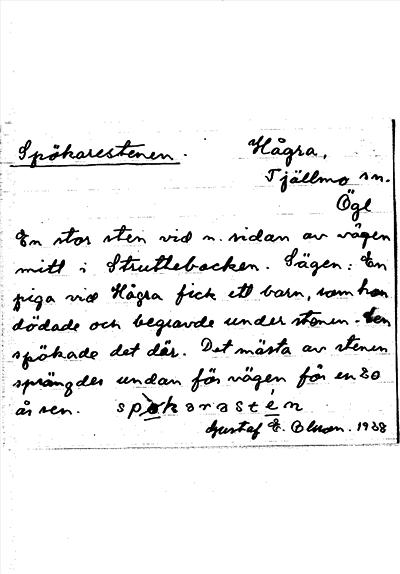 Spökarestenen.
Hågra,
Tjällmo sn.
Ögl
En stor sten vid n. sidan av vägen
mitt i Struttebacken. Sägen: En
piga vid Hågra fick ett barn, som hon
dödade och begravde under stenen. Sen
spökade det där. Det mästa av stenen
sprängdes undan för vägen för en 30
år sen. spökarəstén
Gustaf E. Olsson. 1938